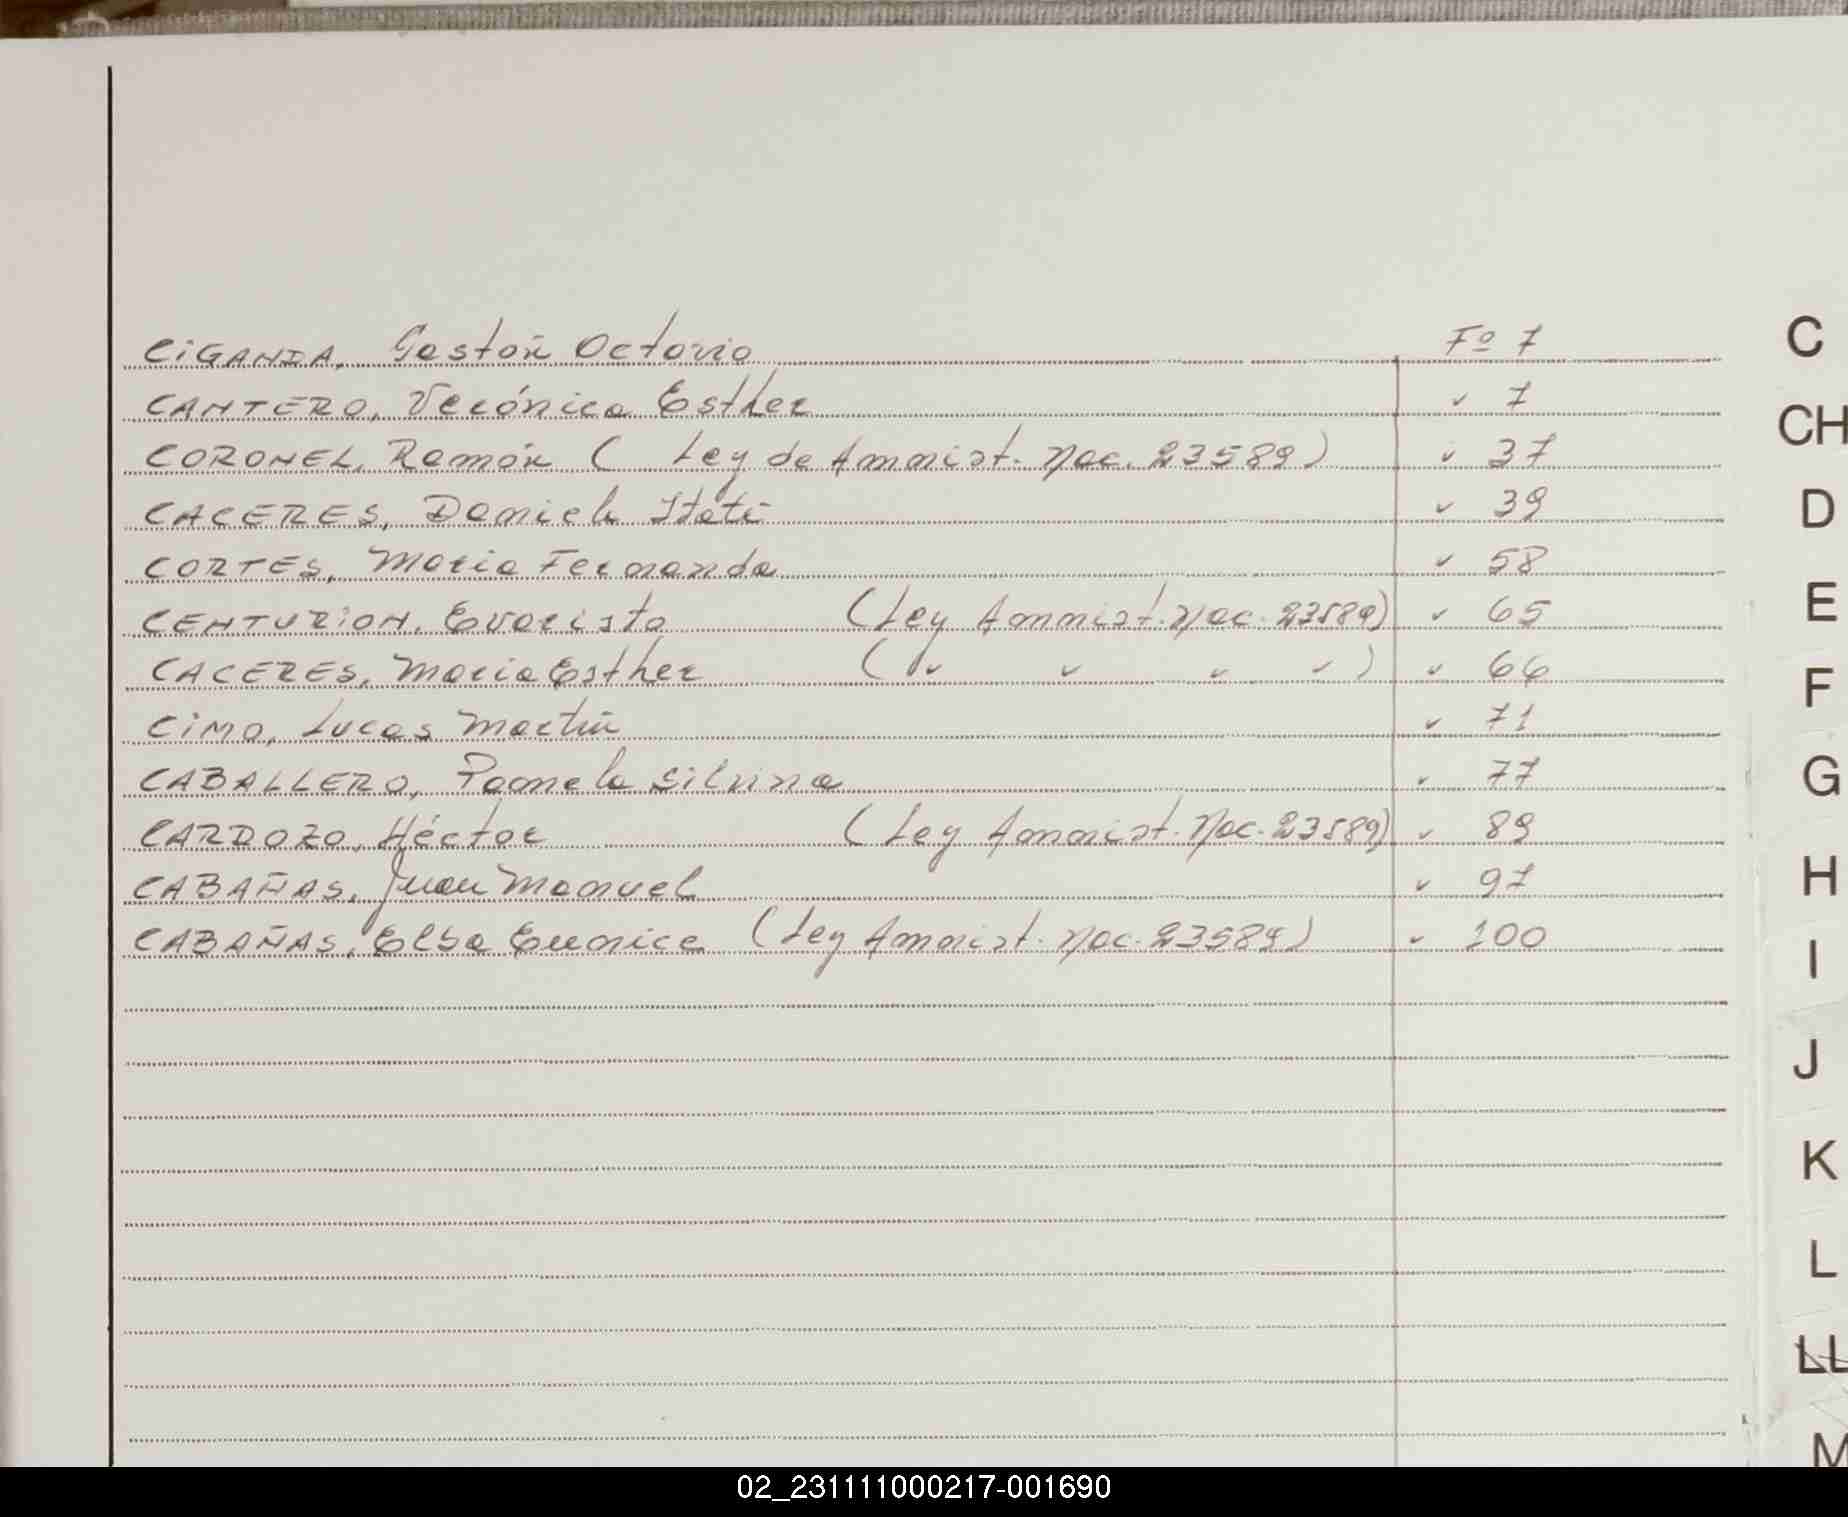 CIGANDA, Gastón Octavio Fº 7
CANTERO, Verónica Esther " 7
CORONEL, Ramón ( Ley de Amnist. Nac. 23589) " 37
CACERES, Daniela Itatí " 39
CORTES, María Fernanda " 58
CENTURION, Evaristo (Ley Amnist. Nac. 23589) " 65
CACERES, María Esther ( " " " " ) " 66
CIMA, Lucas Martín " 71
CABALLERO, Pamela Silvina " 77
CARDOZO, Héctor (Ley Amnist. Nac. 23589) " 89
CABAÑAS, Juan Manuel " 97
CABAÑAS, Elba Eunice (Ley Amnist. Nac. 23589) " 100
C
CH
D
E
F
G
H
I
J
K
L
LL
M
02_231111000217-001690